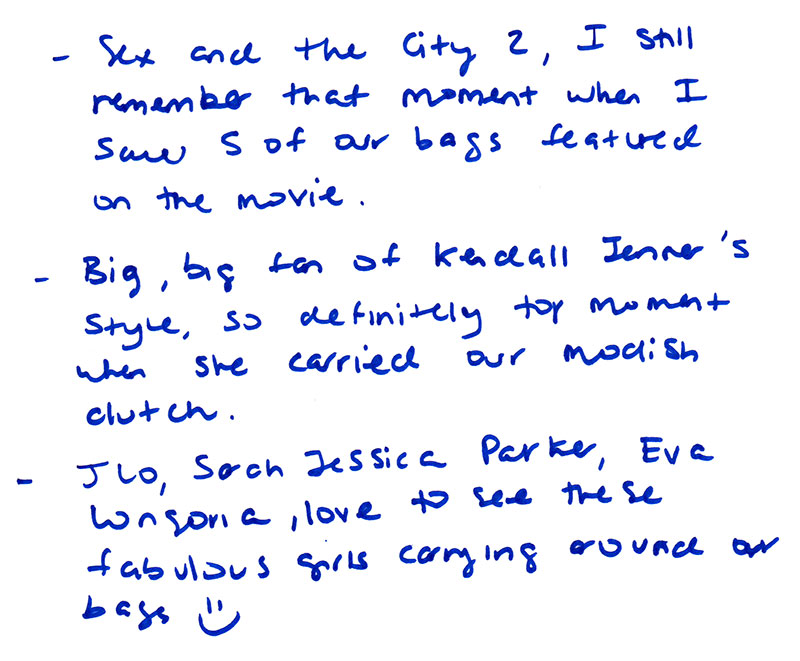 - Sex and the City 2, I still
remember that moment when I
saw 5 of our bags featured
on the movie.
- Big, big fan of Kendall Jenner's
style, so definitely top moment
when she carried our modish
clutch.
- JLO, Sarah Jessica Parker, Eva
Longoria, love to see these
fabulous girls carrying around our
bags :)